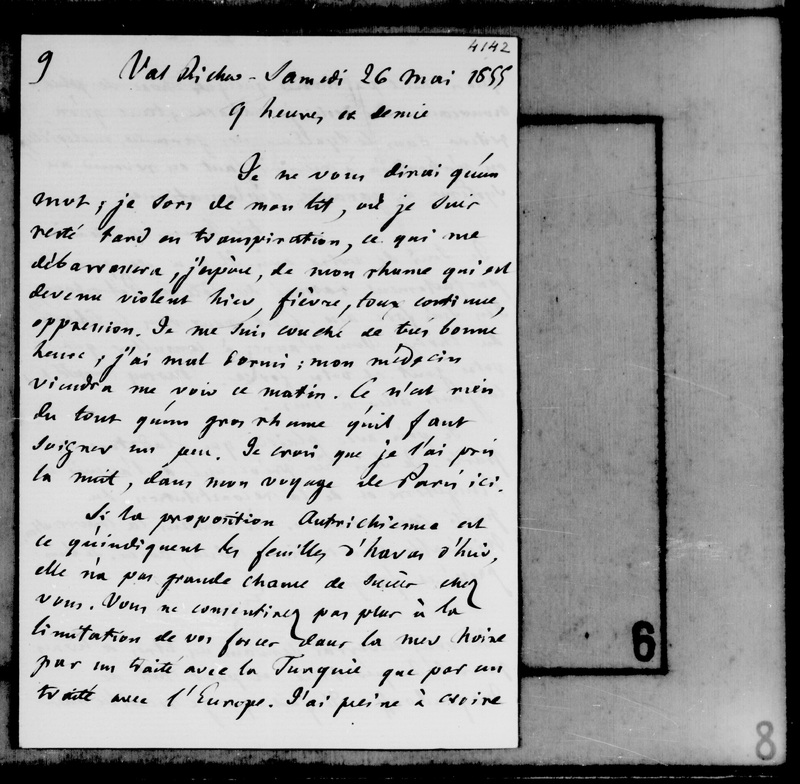 4142
9 Val Richer - Samedi 26 mai 1855
9 heures et demie
Je ne vous dirai qu'un
mot ; je sors de mon lit, où je suis
resté tard en transpiration, ce qui me
débarrassera, j'espère, de mon rhume qui est
devenu violent hier, fièvre, toux continue,
oppression. Je me suis couché de très bonne
heure ; j'ai mal dormi ; mon médecin
viendra me voir ce matin. Ce n'est rien
du tout qu'un gros rhume qu'il faut
soigner un peu. Je crois que je l'ai pris
la nuit, dans mon voyage de Paris ici.
Si la proposition Autrichienne est
ce qu'indiquent les feuilles d'havas d'hier,
elle n'a pas grande chance de succès chez
vous. Vous ne consentirez pas plus à la
limitation de vos forces dans la mer Noire
par un traité avec la Turquie que par un
traité avec l'Europe. J'ai peine à croire
6
8